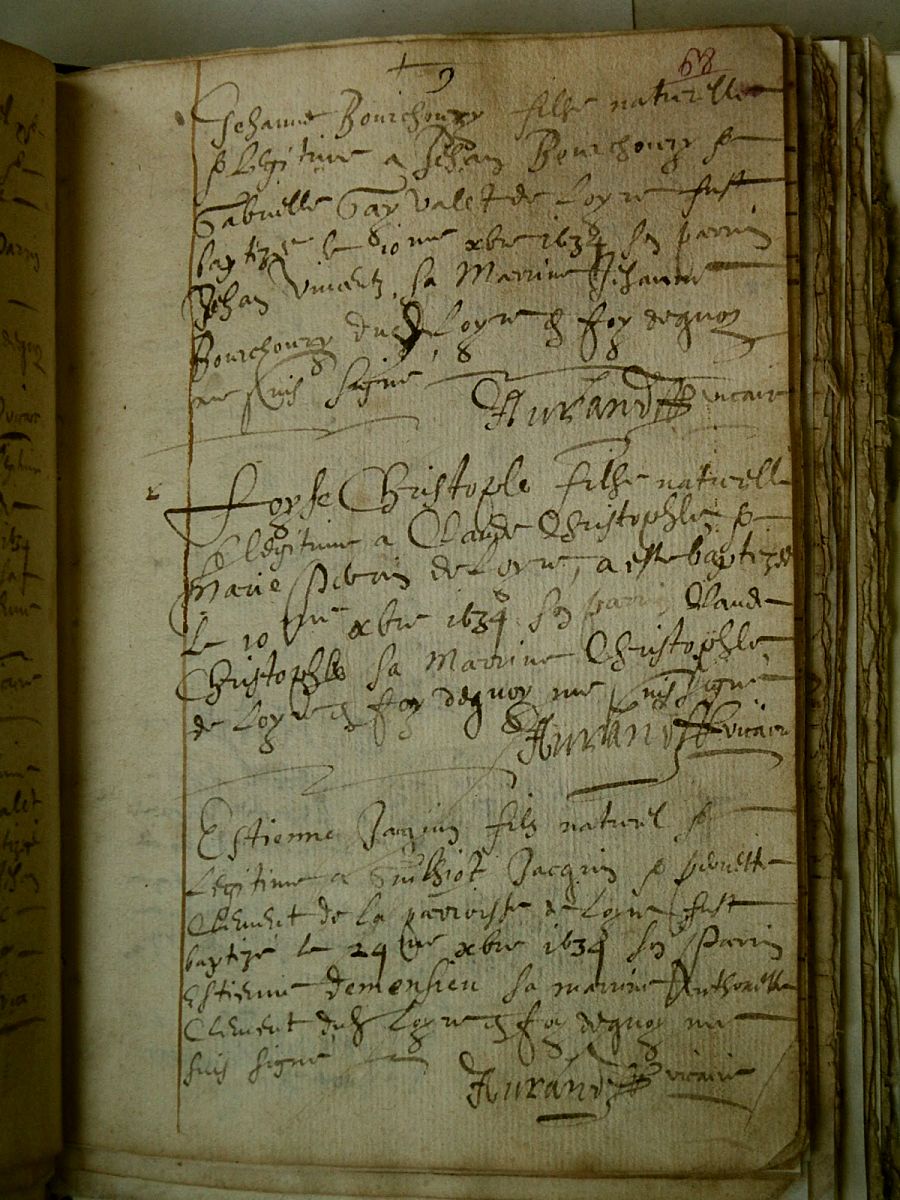 68
Jehanne Bourchouzy filhe naturelle
& legitime a Jehan Bourchouzy &
Gabrielle Gayvalet de Loyre fust
baptizée le 10me xbre 1634 son parrin
Jehan Vincentz sa Marrine Jehanne
Bourchouzy dud Loyre en foy de quoy
me suis signé
Aurand vicaire
Christople filhe naturelle
& legitime a Claude Christophle &
Marie de Loyre, a esté baptizée
le 10me xbre 1634 son parrin Claude
Christophle sa Marrine Christophle
de Loyre en foy de quoy me suis signé
Aurand vicaire
Estienne Jacquin filz naturel &
Legitime a Guilhiot Jacquin & pierrette
Clement de la parroisse de Loyre fust
baptizé le 24me xbre 1634 son Parrin
Estienne demensieu sa marrine Anthonette
Clement dud Loyre en foy de quoy me
suis signé
Aurand vicaire